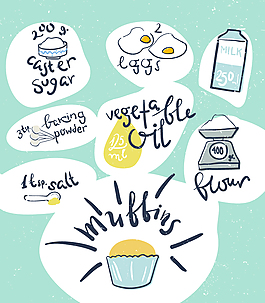 200 g.
caster
sugar
2
eggs
MILK
250
3 tsp.
baking
powder
vegetable
oil
125
ml
400
g.
flour
1 tsp. salt
muffins